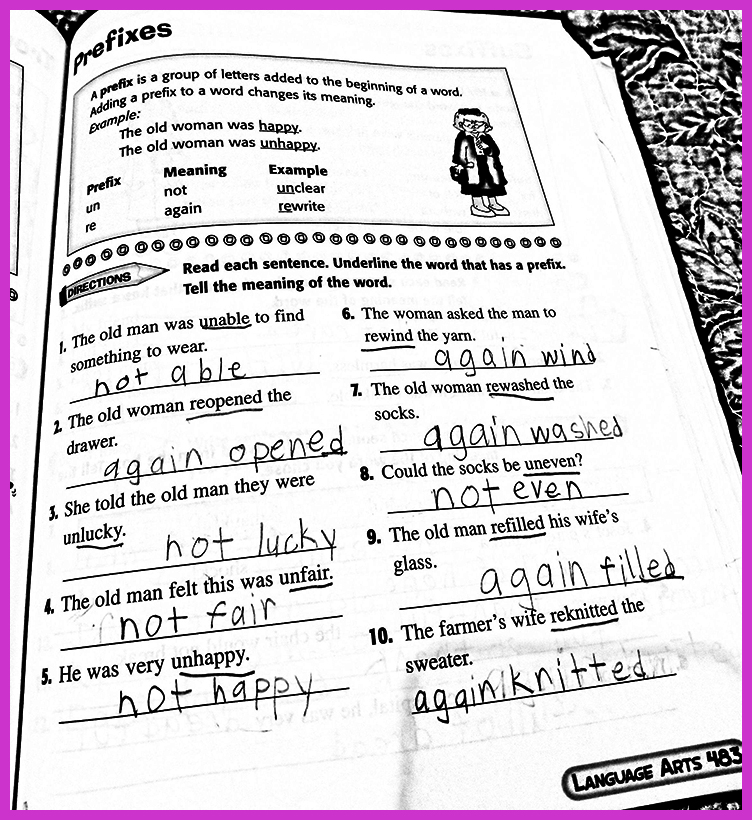 Prefixes
A prefix is a group of letters added to the beginning of a word.
Adding a prefix to a word changes its meaning.
Example:
The old woman was happy.
The old woman was unhappy.
Prefix Meaning Example
un not unclear
re again rewrite
DIRECTIONS
Read each sentence. Underline the word that has a prefix.
Tell the meaning of the word.
1. The old man was unable to find
something to wear.
not able
2. The old woman reopened the
drawer.
again opened
3. She told the old man they were
unlucky.
not lucky
4. The old man felt this was unfair.
not fair
5. He was very unhappy.
not happy
6. The woman asked the man to
rewind the yarn.
again wind
7. The old woman rewashed the
socks.
again washed
8. Could the socks be uneven?
not even
9. The old man refilled his wife's
glass.
again filled
10. The farmer's wife reknitted the
sweater.
again knitted
LANGUAGE ARTS 483